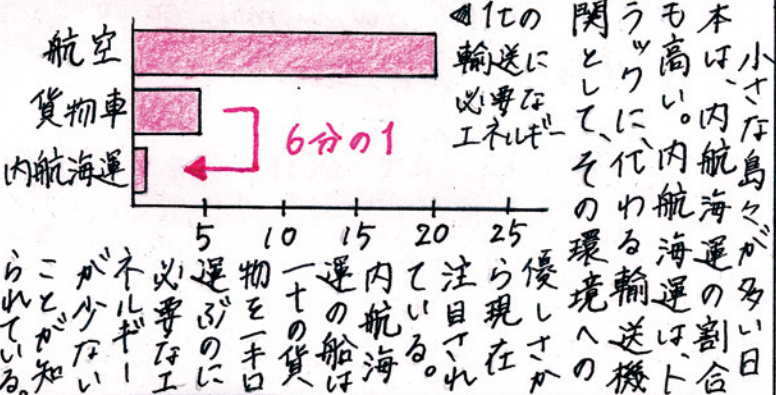 航空
貨物車
内航海運
6分の1
5 10 15 20 25
◀1tの
輸送に
必要な
エネルギー
小さな島々が多い日
本は、内航海運の割合
も高い。内航海運は、ト
ラックに、代わる輸送機
関として、その環境への
優しさか
ら現在
注目され
ている。
内航海
運の船は
一tの貨
物を一キロ
運ぶのに
必要なエ
ネルギー
が少ない
ことが知
られている。